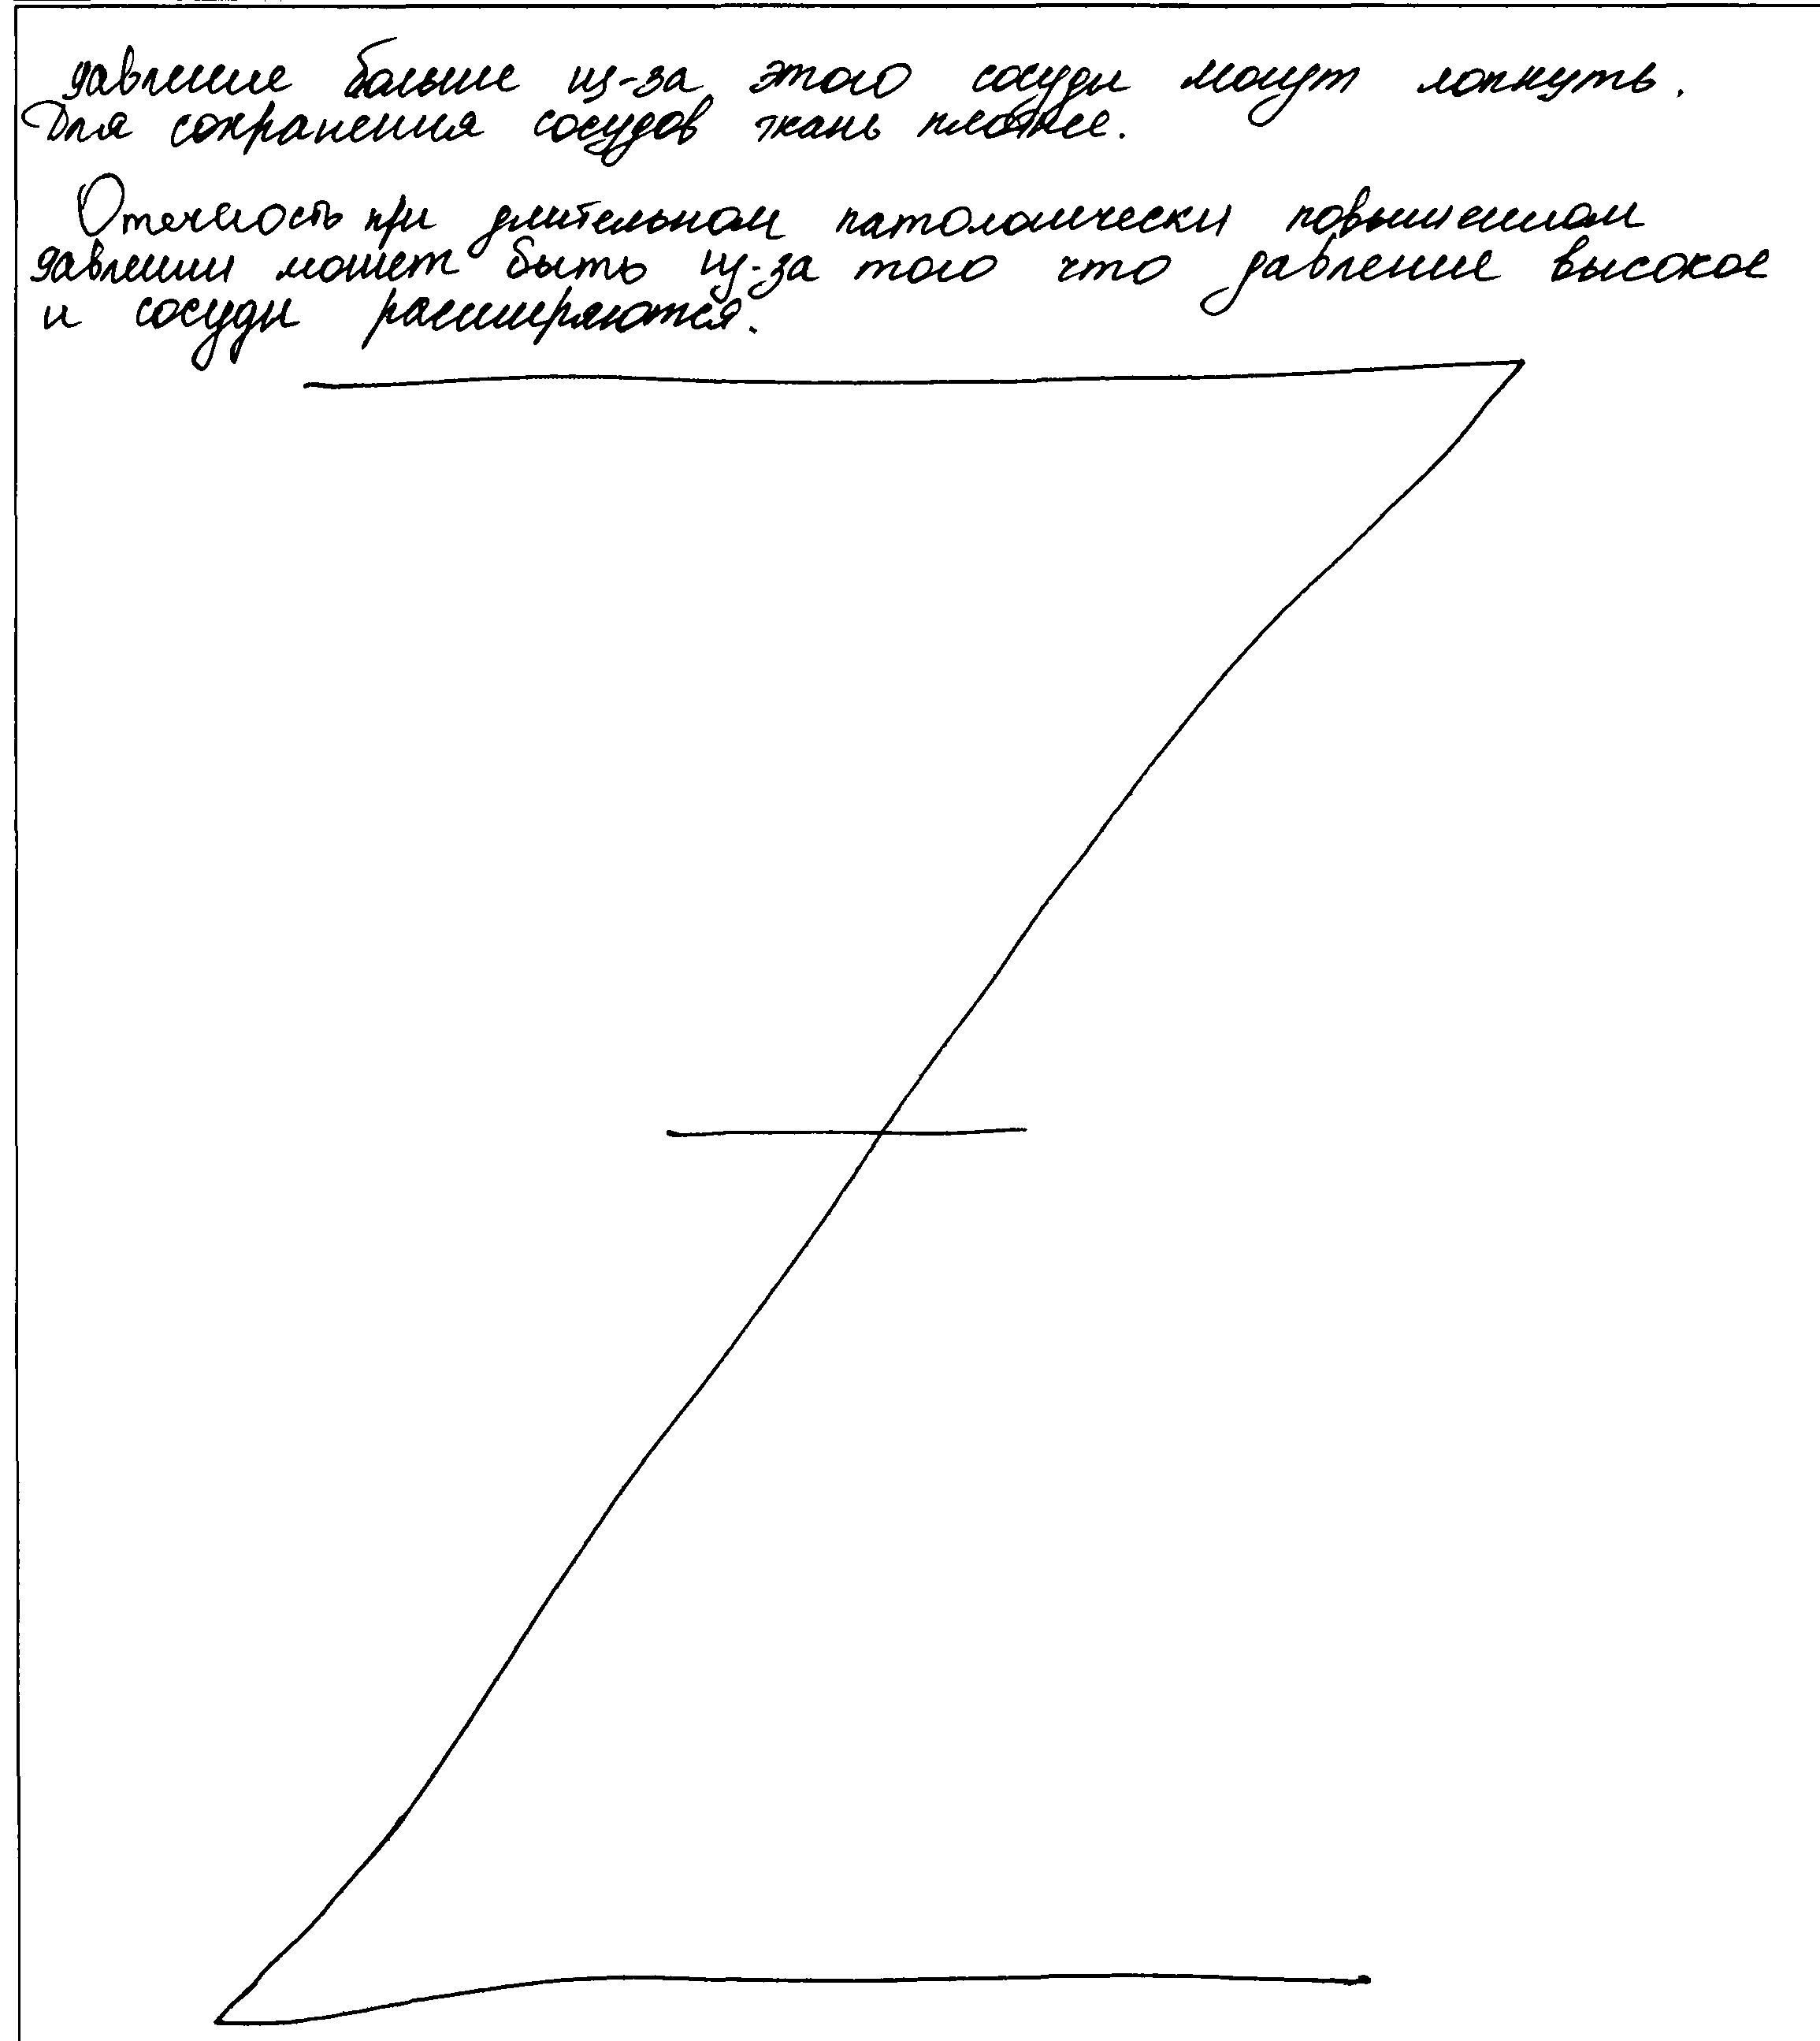 давление больше из-за этого сосуды могут лопнуть.
Для сохранения сосудов ткань плотнее.
Отечность при длительном патологически повышенном
давлении может быть из-за того что давление высокое
и сосуды расширяются.